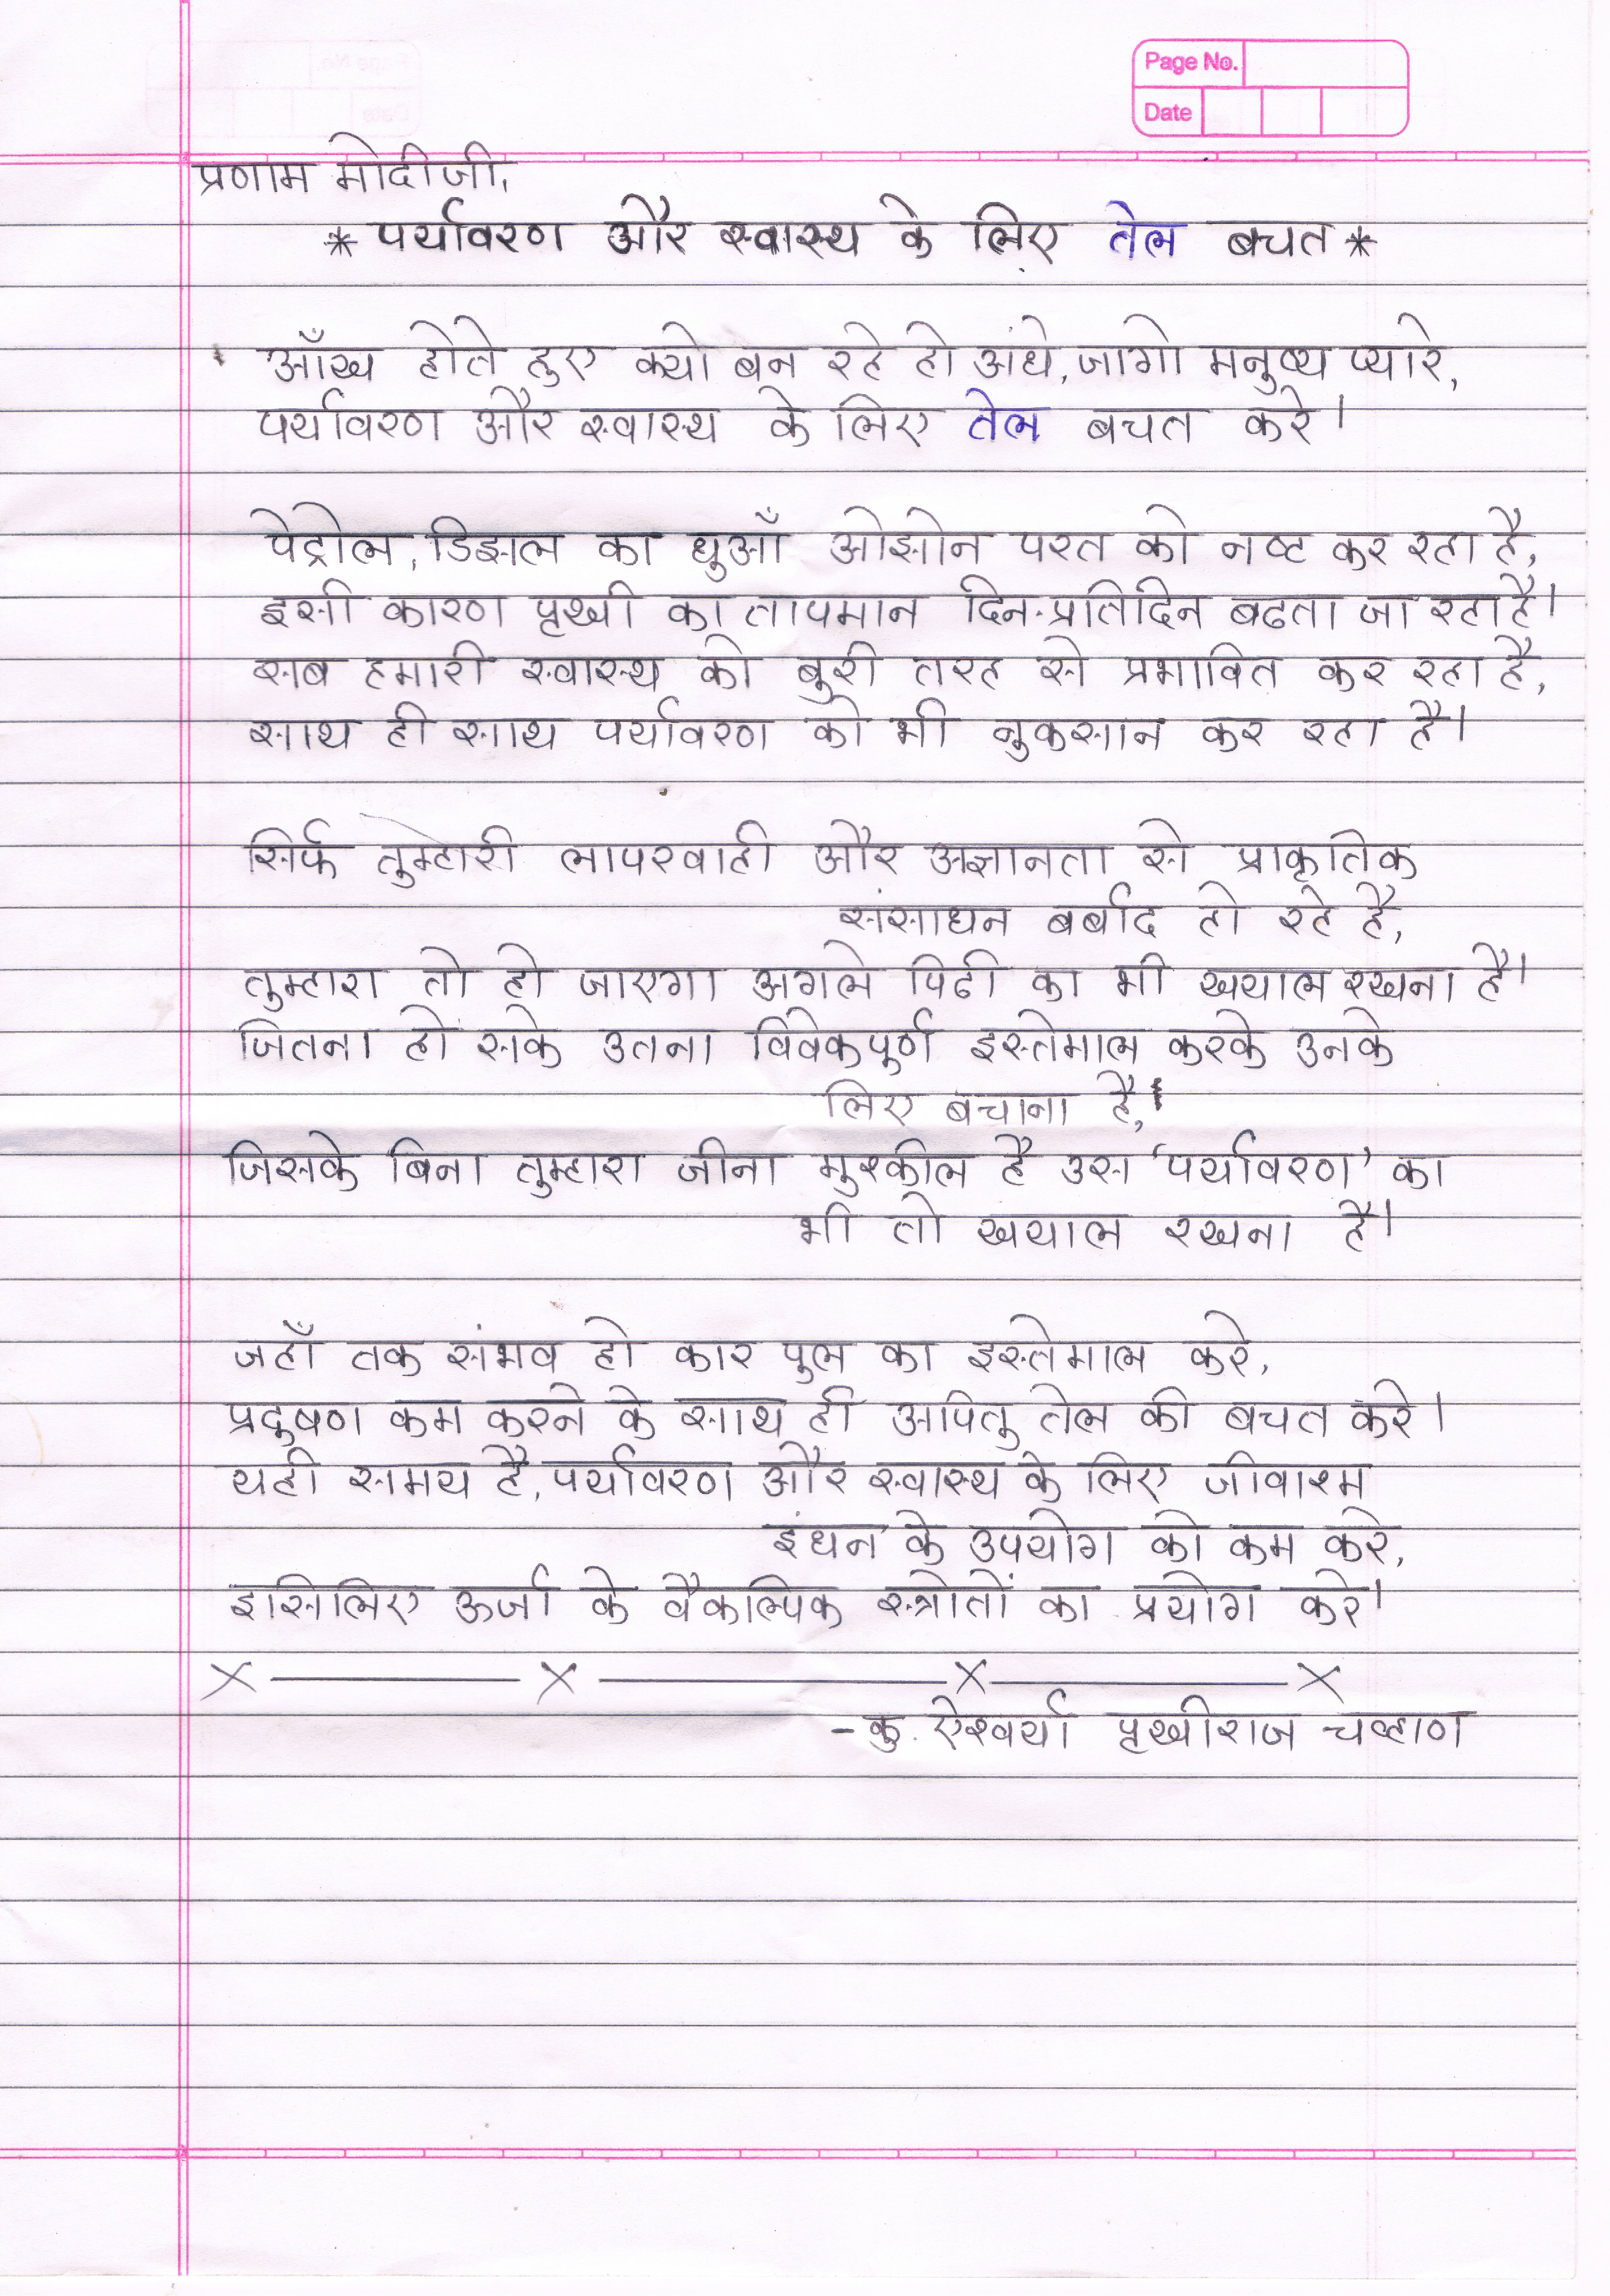 Page No.
Date
प्रणाम मोदीजी,
* पर्यावरण और स्वास्थ के लिए तेल बचत *
आँख होते हुए क्यो बन रहे हो अंधे, जागो मनुष्य प्यारे,
पर्यावरण और स्वास्थ के लिए तेल बचत करे।
पेट्रोल, डिझल का धुआँ ओझोन परत को नष्ट कर रहा है,
इसी कारण पृथ्वी का तापमान दिन-प्रतिदिन बढता जा रहा है।
सब हमारी स्वास्थ को बुरी तरह से प्रभावित कर रहा है,
साथ ही साथ पर्यावरण को भी नुकसान कर रहा है।
सिर्फ तुम्हारी लापरवाही और अज्ञानता से प्राकृतिक
संसाधन बर्बाद हो रहे है,
तुम्हारा तो हो जाएगा अगले पिढी का भी खयाल रखना है।
जितना हो सके उतना विवेकपूर्ण इस्तेमाल करके उनके
लिए बचाना है,
जिसके बिना तुम्हारा जीना मुश्कील है उस 'पर्यावरण' का
भी तो खयाल रखना है।
जहाँ तक संभव हो कार पुल का इस्तेमाल करे,
प्रदुषण कम करने के साथ ही अपितु तेल की बचत करे।
यही समय है, पर्यावरण और स्वास्थ के लिए जीवाश्म
इंधन के उपयोग को कम करे,
इसिलिए ऊर्जा के वैकल्पिक स्त्रोतों का प्रयोग करे।
x ——— x ——— x ——— x
- कु. ऐश्वर्या पृथ्वीराज चव्हाण